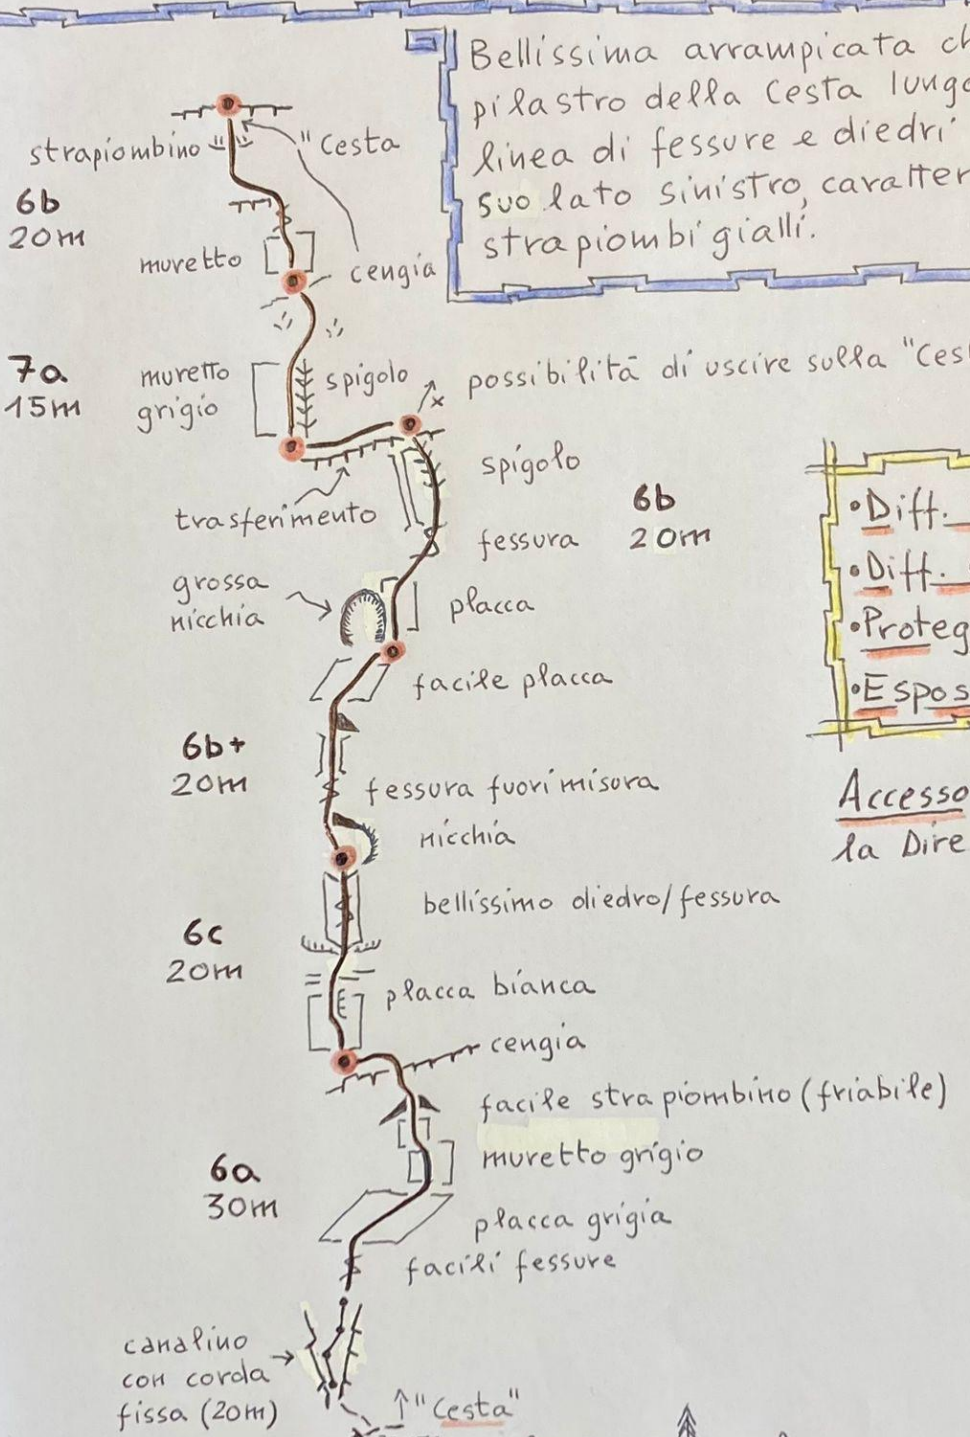 Bellissima arrampicata ch
pilastro della Cesta lungo
linea di fessure e diedri
suo lato sinistro, caratter
strapiombi gialli.
strapiombino
"Cesta
6b
20m
muretto
cengia
7a
15m
muretto
grigio
spigolo
possibilità di uscire sulla "Ces
spigolo
trasferimento
6b
20m
fessura
grossa
nicchia
placca
facile placca
6b+
20m
fessura fuori misura
nicchia
bellissimo diedro/fessura
6c
20m
placca bianca
cengia
facile strapiombino (friabile)
muretto grigio
6a
30m
placca grigia
facili fessure
canalino
con corda
fissa (20m)
"Cesta"
•Diff.
•Diff.
•Proteg
•Espos
Accesso
la Dire